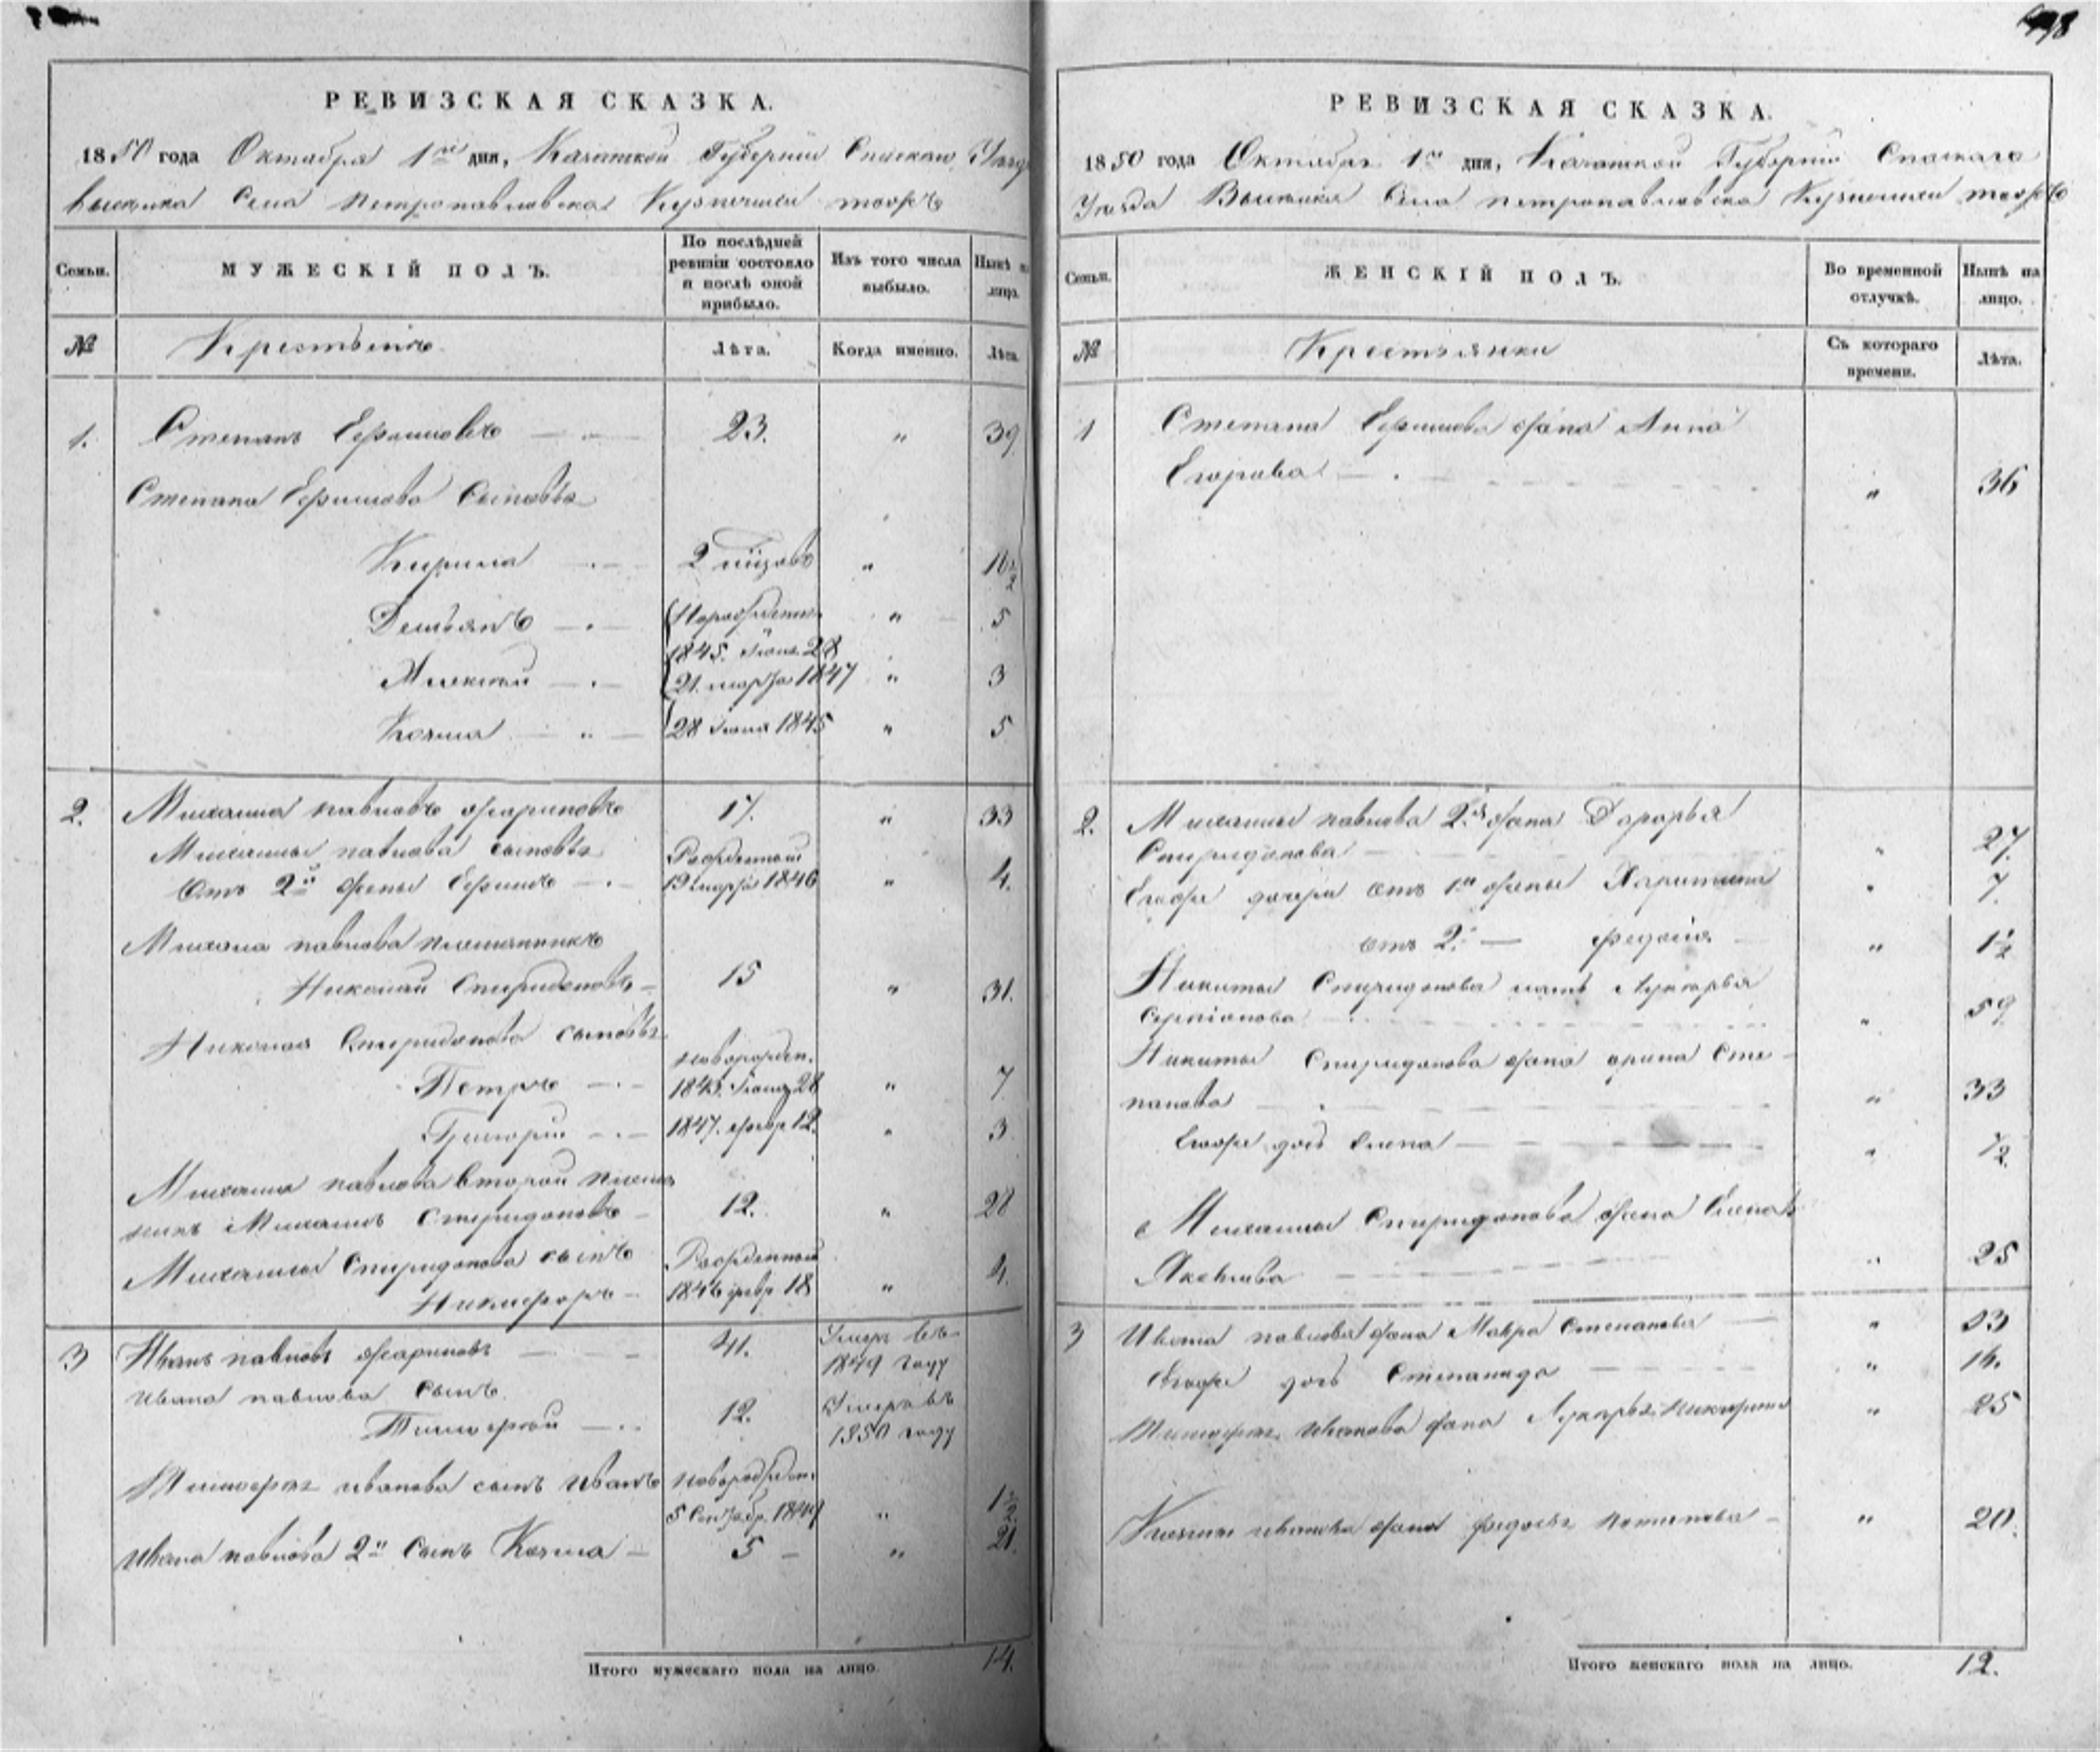 498
РЕВИЗСКАЯ СКАЗКА.
1850 года Октября 1го дня, Казанской Губерніи Спаскаго Уезда
села Петропавловска Кузнечиха тожъ
Семьи.
МУЖЕСКІЙ ПОЛЪ.
По послѣдней ревизіи состояло и послѣ оной прибыло.
Изъ того числа выбыло.
Нынѣ на лицо.
№
Крестьянъ
Лѣта.
Когда именно.
Лѣта.
1. Степанъ Ефимовъ 23. " 39
Степана Ефимова сыновья
Кирила 2 " 16½
Демьянъ Новорожден. 1845. Іюня 28 " 5
Алексѣй 21 марта 1847 " 3
Козма 28 Іюня 1845 " 5
2. Михаила павловъ жариновъ 17. " 33
Михаилы павлова сыновья
Отъ 2й жены Ефимъ Рожденный 19 марта 1846 " 4.
Михаила павлова племянникъ
Николай Спиридоновъ 15 " 31.
Николая Спиридонова сыновья
Петръ новорожден. 1843. Іюня 28 " 7
Григорій 1847. февр 12. " 3
Михаила павлова второй племян
никъ Михаилъ Спиридоновъ 12. " 28
Михаилы Спиридонова сынъ
Никифоръ Рожденный 1846 февр 18 " 4.
3 Иванъ павловъ жариновъ 41. Умеръ въ 1849 году
Ивана павлова сынъ
Тимофѣй 12. Умеръ въ 1850 году
Тимофея иванова сынъ Иванъ новорожден. 5 Сентябр. 1849 " 1½
Ивана павлова 2й сынъ Козма 5 " 21.
Итого мужескаго пола на лицо. 14.
РЕВИЗСКАЯ СКАЗКА.
1850 года Октября 1го дня, Казанской Губерніи Спаскаго
Уезда села петропавловска Кузнечиха тожъ
Семьи.
ЖЕНСКІЙ ПОЛЪ.
Во временной отлучкѣ.
Нынѣ на лицо.
№
Крестьянки
Съ котораго времени.
Лѣта.
1 Степана Ефимова жена Анна
Егорова " 36
2. Михаилы павлова 2я жена Дарья
Спиридонова " 27.
Егоже дочери отъ 1й жены Харитина " 7.
отъ 2й федосія " 1½
Никиты Спиридонова мать Лукерья
" 59
Никиты Спиридонова жена арина Сте-
панова " 33
Егоже дочь Елена " ½
Михаилы Спиридонова жена Елена
Яковлева " 25
3 Ивана павлова жена Мавра Степанова " 53
Егоже дочь Степанида " 16.
Тимофея Иванова жена Лукерья никифорова " 25
Козмы иванова жена федосья потапова " 20.
Итого женскаго пола на лицо. 12.